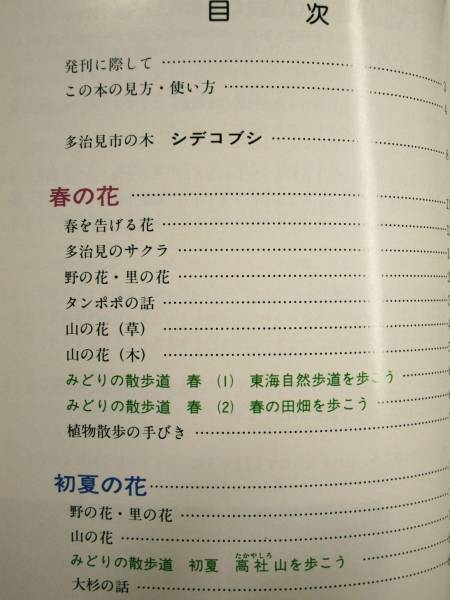 目次
発刊に際して
この本の見方・使い方
多治見市の木 シデコブシ
春の花
春を告げる花
多治見のサクラ
野の花・里の花
タンポポの話
山の花(草)
山の花(木)
みどりの散歩道 春 (1) 東海自然歩道を歩こう
みどりの散歩道 春 (2) 春の田畑を歩こう
植物散歩の手びき
初夏の花
野の花・里の花
山の花
みどりの散歩道 初夏 高社山を歩こう
たかやしろ
大杉の話